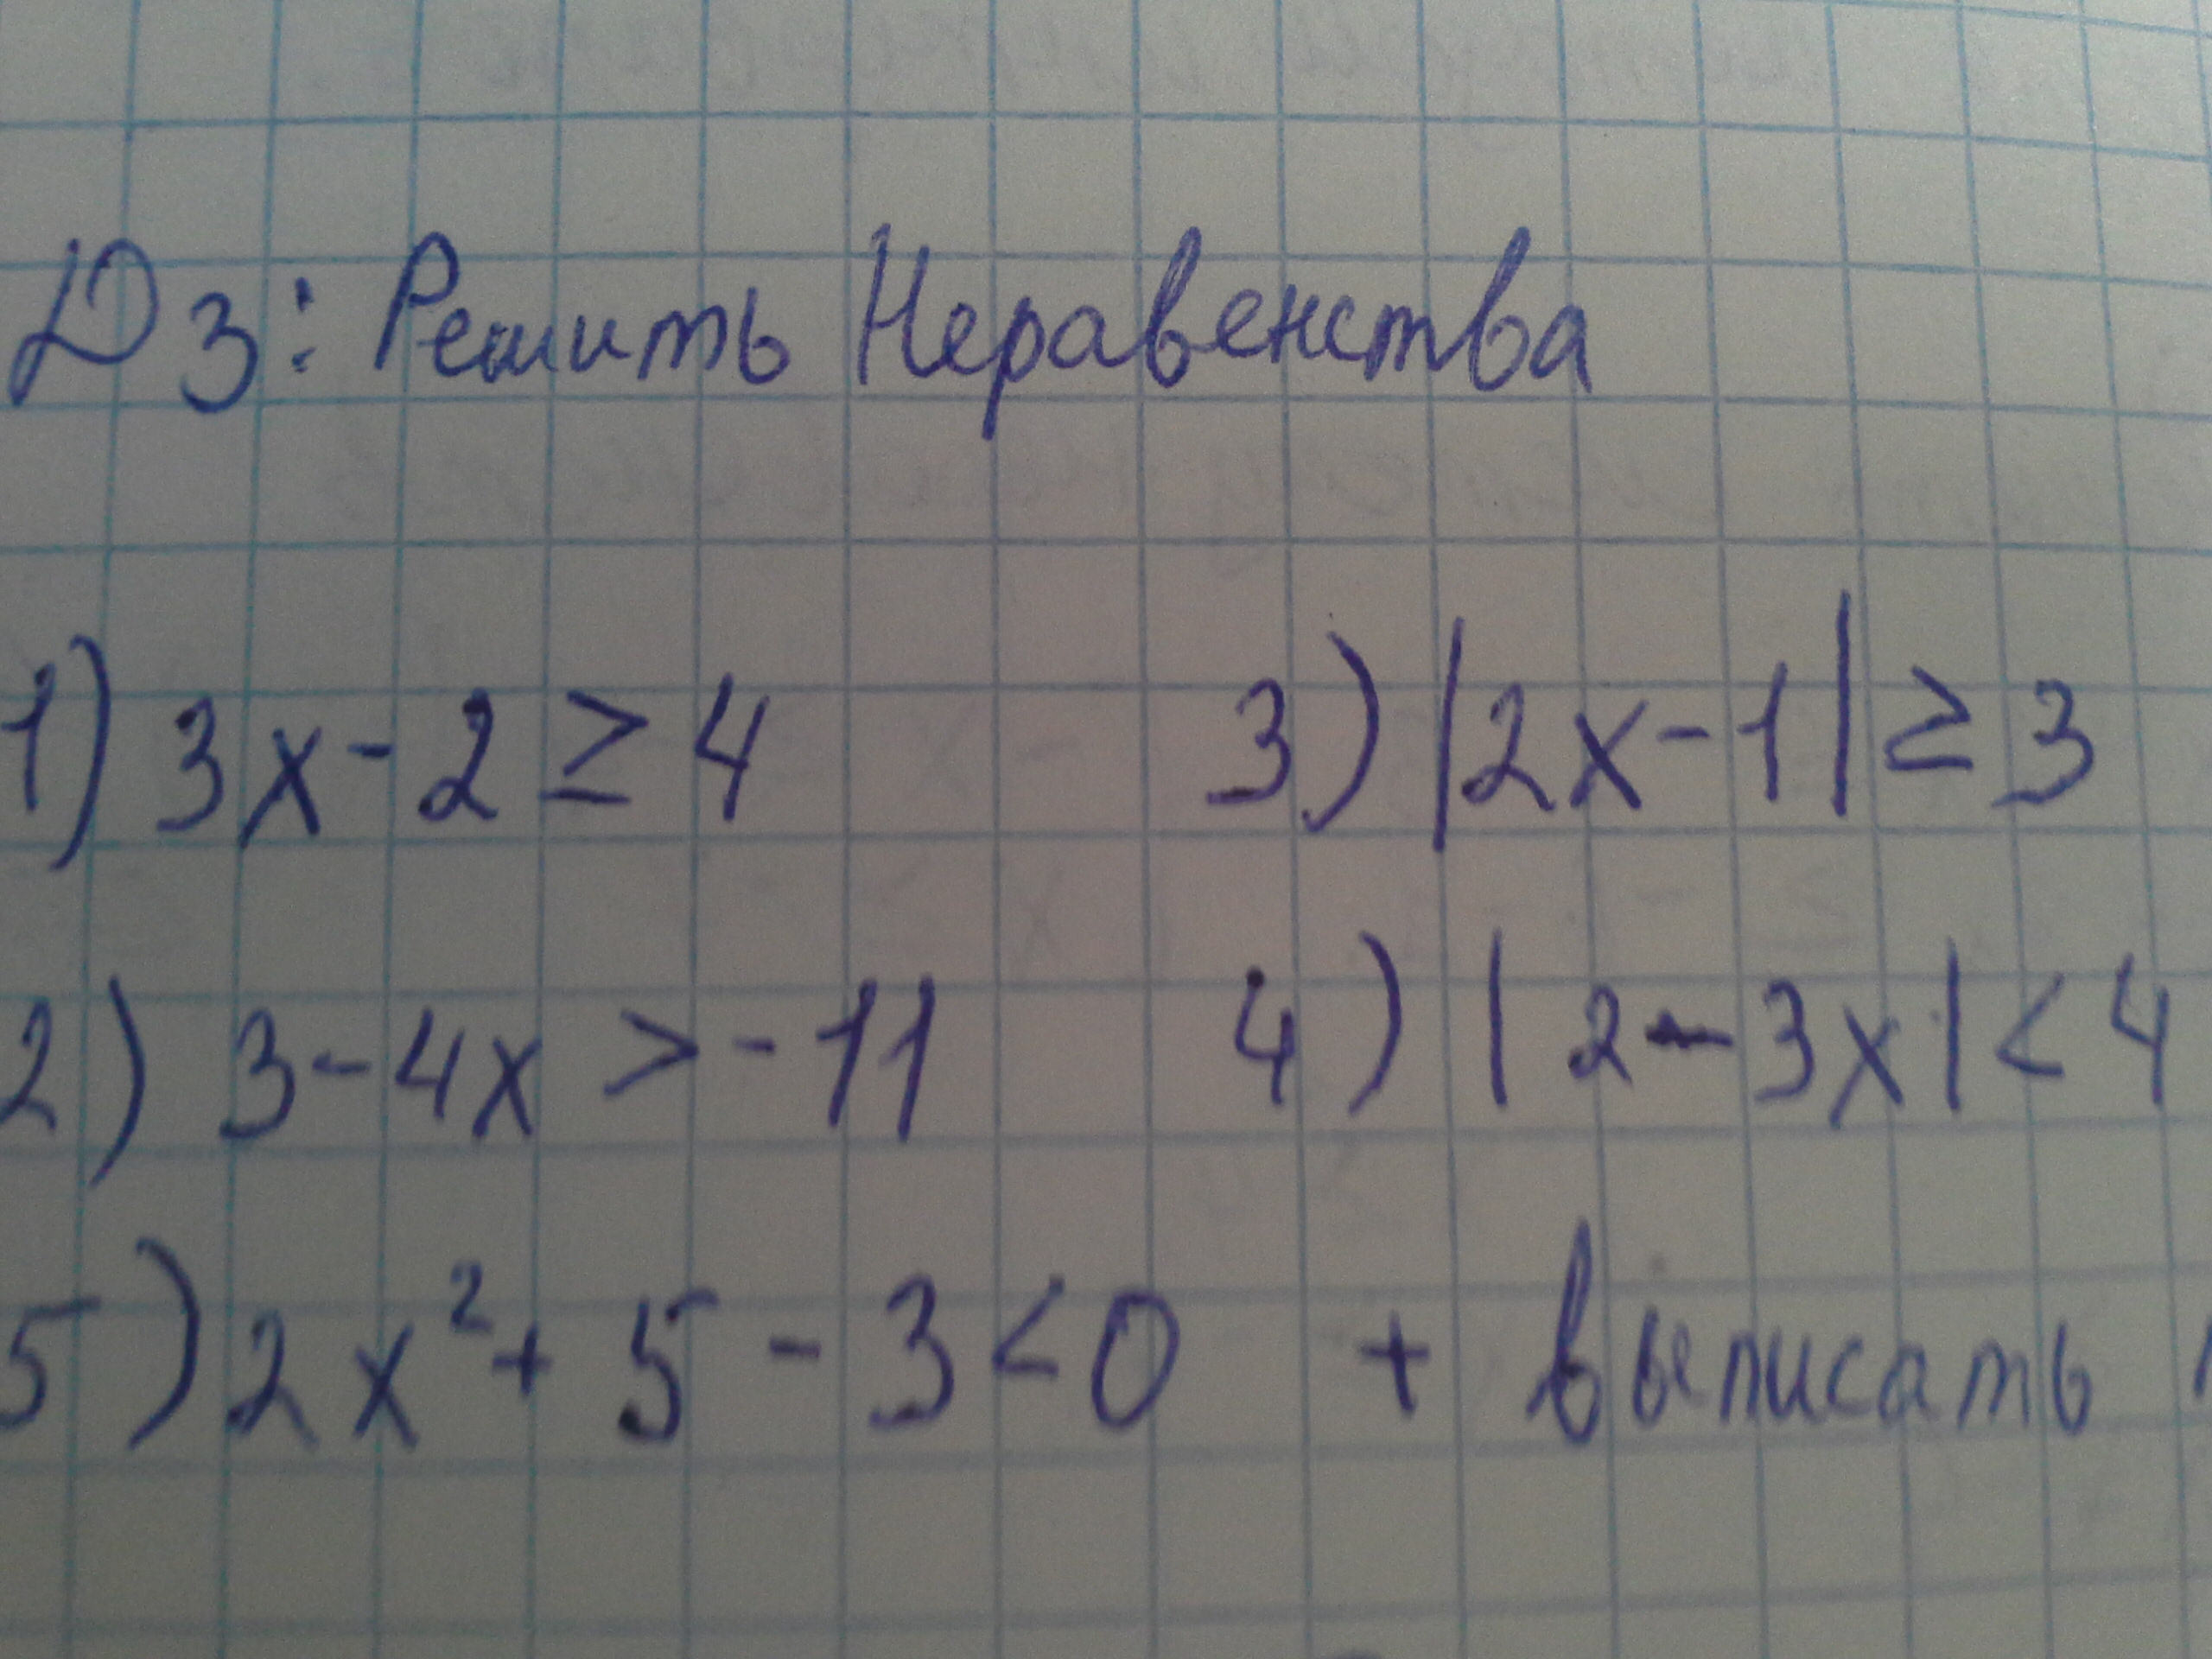 ДЗ: Решить Неравенства
1) 3x - 2 ≥ 4 3) |2x - 1| ≥ 3
2) 3 - 4x > -11 4) | 2 - 3x | < 4
5) 2x² + 5 - 3 < 0 + выписать